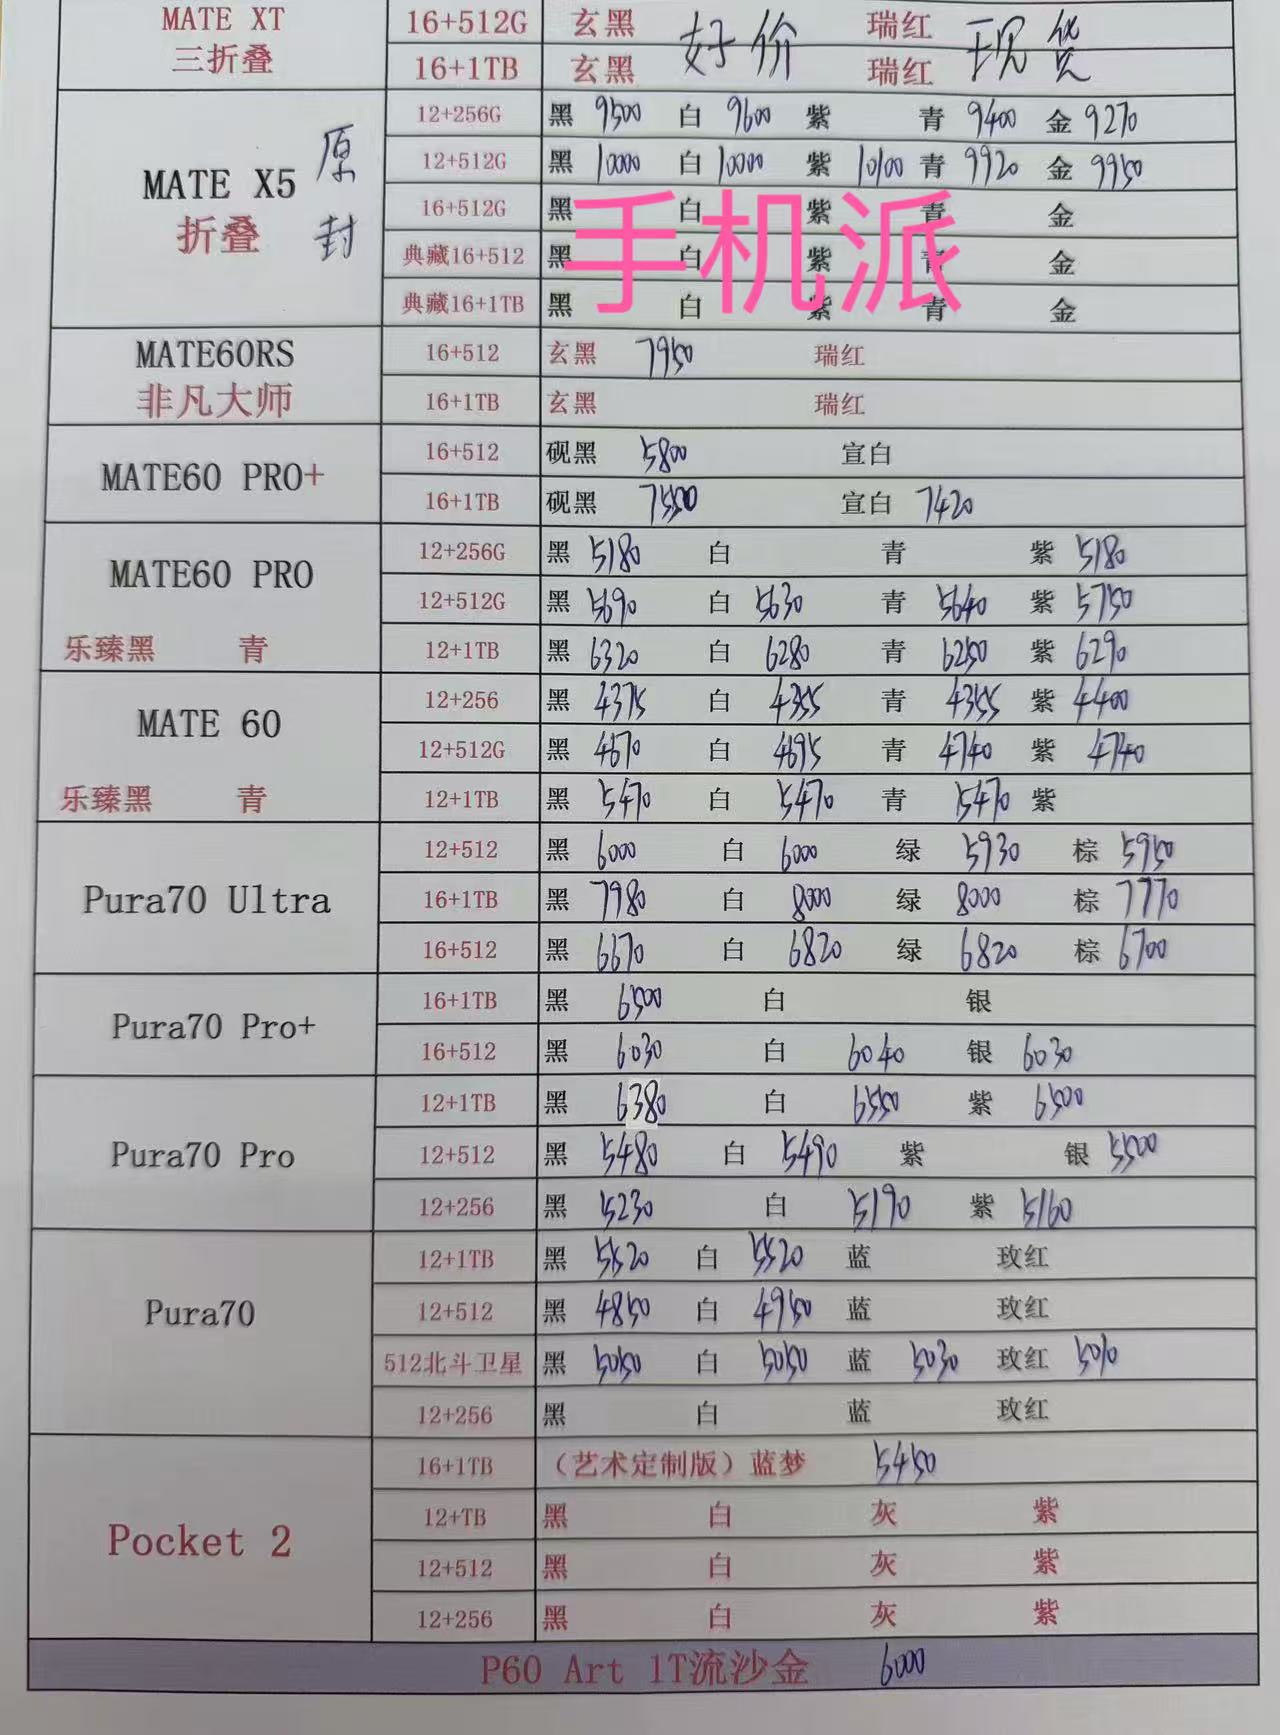 MATE XT 16+512G 玄黑 好价 瑞红 现货
三折叠 16+1TB 玄黑 瑞红
12+256G 黑 9500 白 9600 紫 青 9400 金 9270
MATE X5 原封 12+512G 黑 10000 白 10000 紫 10100 青 9920 金 9950
折叠 16+512G 黑 白 紫 青 金
手机派
典藏16+512 黑 白 紫 青 金
典藏16+1TB 黑 白 紫 青 金
MATE60RS 16+512 玄黑 7950 瑞红
非凡大师 16+1TB 玄黑 瑞红
MATE60 PRO+ 16+512 砚黑 5800 宣白
16+1TB 砚黑 7550 宣白 7420
MATE60 PRO 12+256G 黑 5180 白 青 紫 5180
12+512G 黑 5690 白 5630 青 5640 紫 5750
乐臻黑 青 12+1TB 黑 6320 白 6280 青 6250 紫 6290
MATE 60 12+256 黑 4375 白 4355 青 4355 紫 4400
12+512G 黑 4670 白 4695 青 4740 紫 4740
乐臻黑 青 12+1TB 黑 5470 白 5470 青 5470 紫
12+512 黑 6000 白 6000 绿 5930 棕 5950
Pura70 Ultra 16+1TB 黑 7980 白 8000 绿 8000 棕 7770
16+512 黑 6670 白 6820 绿 6820 棕 6700
Pura70 Pro+ 16+1TB 黑 6500 白 银
16+512 黑 6030 白 6040 银 6030
12+1TB 黑 6380 白 6550 紫 6500
Pura70 Pro 12+512 黑 5480 白 5490 紫 银 5500
12+256 黑 5230 白 5190 紫 5160
12+1TB 黑 5520 白 5520 蓝 玫红
Pura70 12+512 黑 4850 白 4950 蓝 玫红
512北斗卫星 黑 5050 白 5050 蓝 5030 玫红 5010
12+256 黑 白 蓝 玫红
16+1TB （艺术定制版）蓝梦 5450
12+TB 黑 白 灰 紫
Pocket 2 12+512 黑 白 灰 紫
12+256 黑 白 灰 紫
P60 Art 1T流沙金 6000